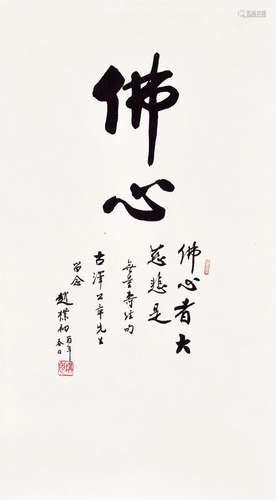 佛心
佛心者大
慈悲是
无量寿经句
古澤 先生
留念
趙樸初